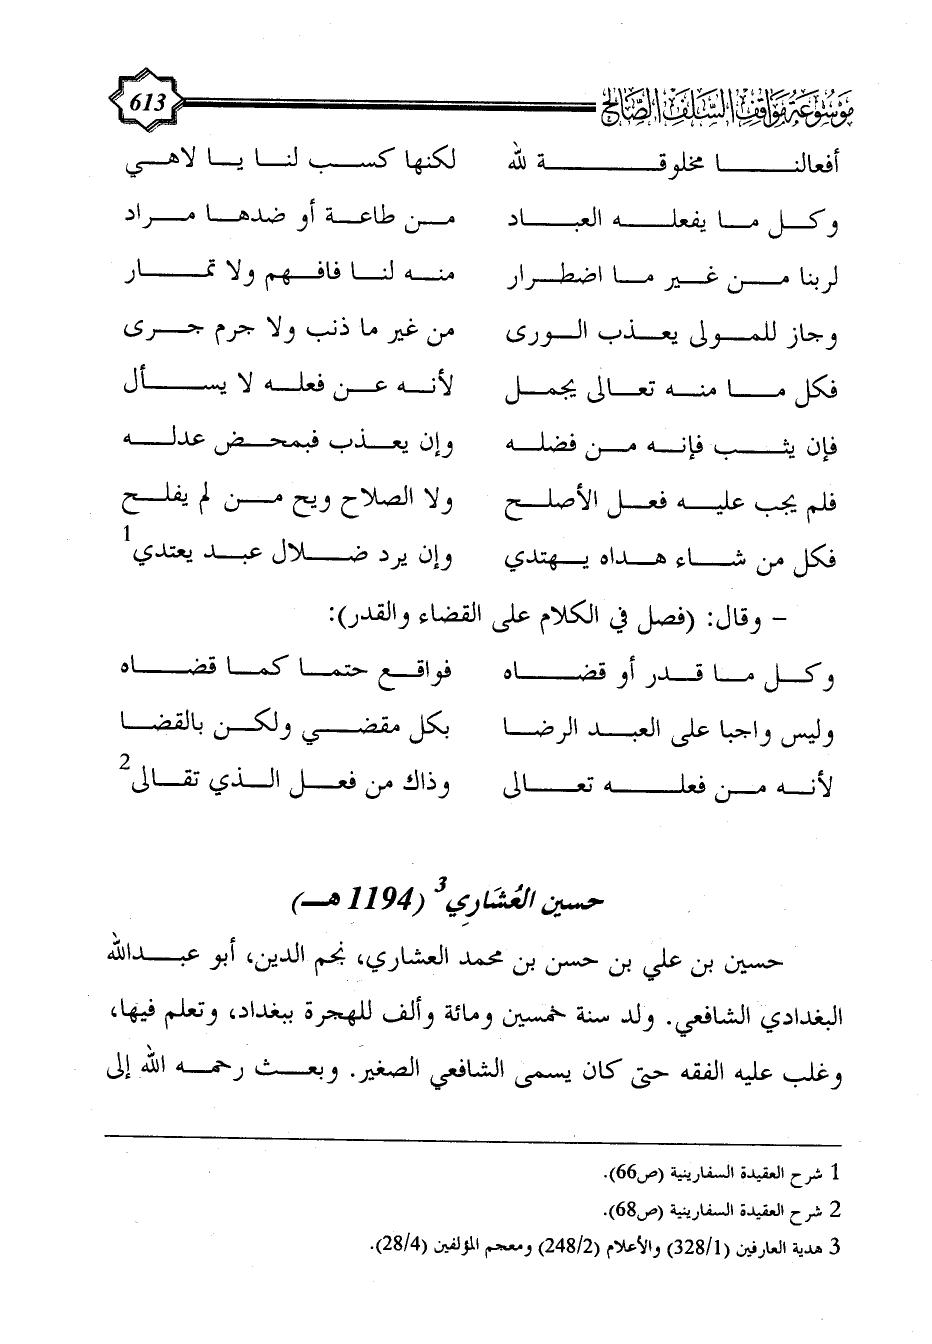 موسوعة مواقف السلف الصالح 613
أفعالنا مخلوقة لله لكنها كسب لنا يا لاهي
وكل ما يفعله العباد من طاعة أو ضدها مراد
لربنا من غير ما اضطرار منه لنا فافهم ولا تمار
وجاز للمولى يعذب الورى من غير ما ذنب ولا جرم جرى
فكل ما منه تعالى يجمل لأنه عن فعله لا يسأل
فإن يثب فإنه من فضله وإن يعذب فبمحض عدله
فلم يجب عليه فعل الأصلح ولا الصلاح ويح من لم يفلح
فكل من شاء هداه يهتدي وإن يرد ضلال عبد يعتدي1
- وقال: (فصل في الكلام على القضاء والقدر):
وكل ما قدر أو قضاه فواقع حتما كما قضاه
وليس واجبا على العبد الرضا بكل مقضي ولكن بالقضا
لأنه من فعله تعالى وذاك من فعل الذي تقالى2
حسين العُشَارِي3 (1194 هـ)
حسين بن علي بن حسن بن محمد العشاري، نجم الدين، أبو عبدالله
البغدادي الشافعي. ولد سنة خمسين ومائة وألف للهجرة ببغداد، وتعلم فيها،
وغلب عليه الفقه حتى كان يسمى الشافعي الصغير. وبعث رحمه الله إلى
1 شرح العقيدة السفارينية (ص66).
2 شرح العقيدة السفارينية (ص68).
3 هدية العارفين (328/1) والأعلام (248/2) ومعجم المؤلفين (28/4).